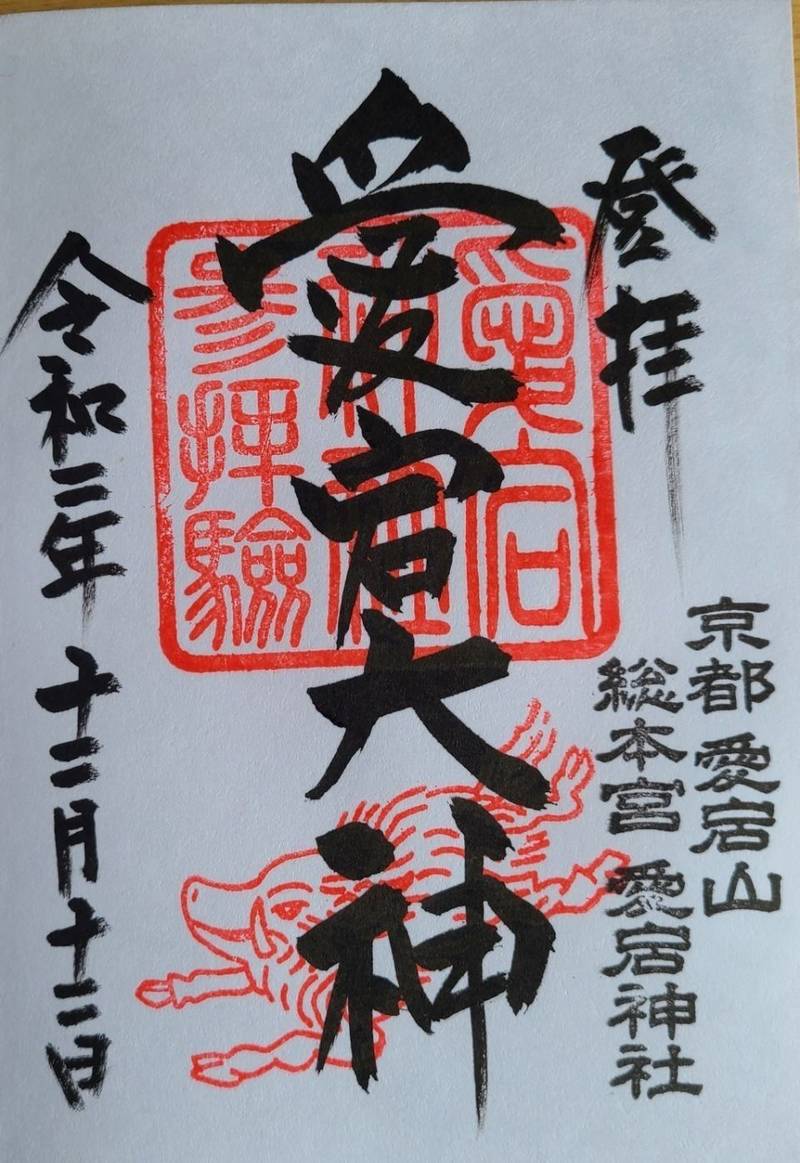 登拝
京都愛宕山
総本宮 愛宕神社
愛宕大神
愛宕
神社
参拝驗
令和二年 十二月十二日